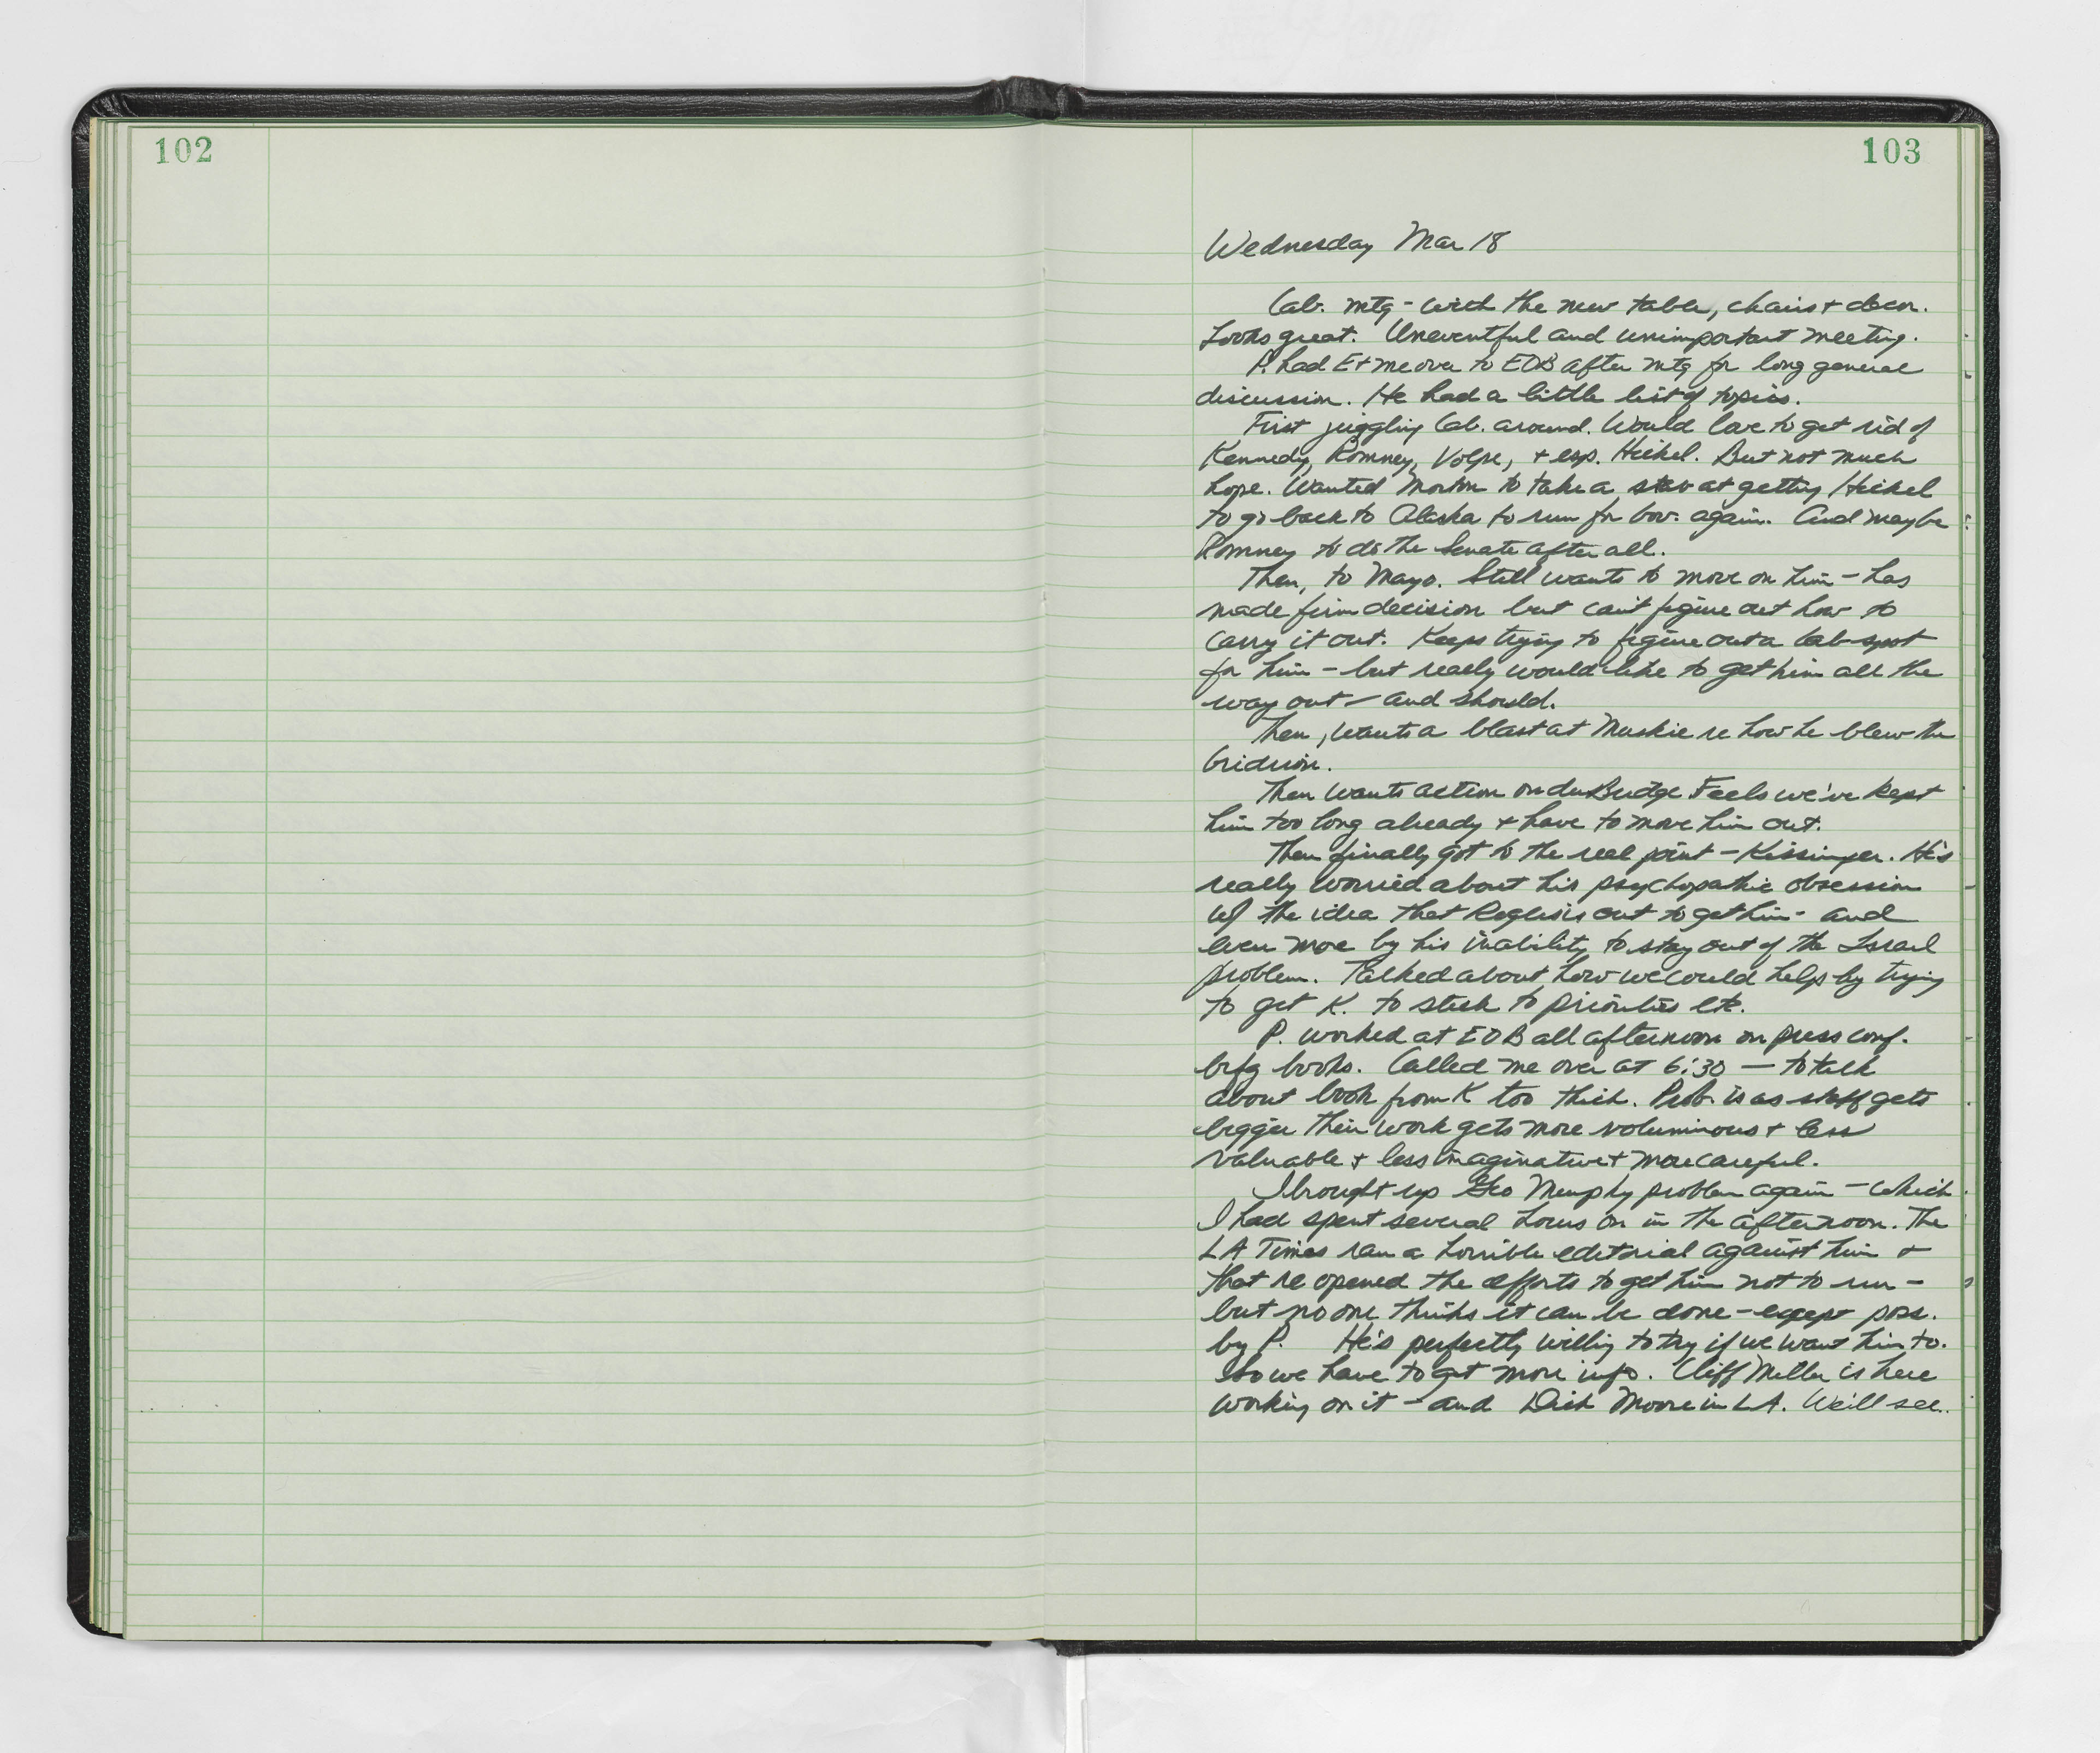 102
103
Wednesday Mar 18
Cab. mtg - with the new table, chairs + decor.
Looks great. Uneventful and unimportant meeting.
P. had E + me over to EOB after mtg for long general
discussion. He had a little list of topics.
First juggling Cab. around. Would love to get rid of
Kennedy, Romney, Volpe, + esp. Hickel. But not much
hope. Wanted Morton to take a stab at getting Hickel
to go back to Alaska to run for Gov. again. And maybe
Romney to do the Senate after all.
Then, to Mayo. Still wants to move on him - has
made firm decision but can't figure out how to
carry it out. Keeps trying to figure out a Cab spot
for him - but really would like to get him all the
way out - and should.
Then, wants a blast at Muskie re how he blew the
Gridiron.
Then wants action on duBridge Feels we've kept
him too long already + have to move him out.
Then finally got to the real point - Kissinger. He's
really worried about his psychopathic obsession
w/ the idea that Rogers is out to get him - and
even more by his inability to stay out of the Israel
problem. Talked about how we could help by trying
to get K. to stick to priorities etc.
P. worked at EOB all afternoon on press conf.
brfg books. Called me over at 6:30 — to talk
about book from K too thick. Prob. is as staff gets
bigger their work gets more voluminous + less
valuable + less imaginative + more careful.
I brought up Geo Murphy problem again - which
I had spent several hours on in the afternoon. The
LA Times ran a horrible editorial against him +
that re opened the efforts to get him not to run -
but no one thinks it can be done - except poss.
by P. He's perfectly willing to try if we want him to.
So we have to get more info. Cliff Miller is here
working on it - and Dick Moore in LA. We'll see.